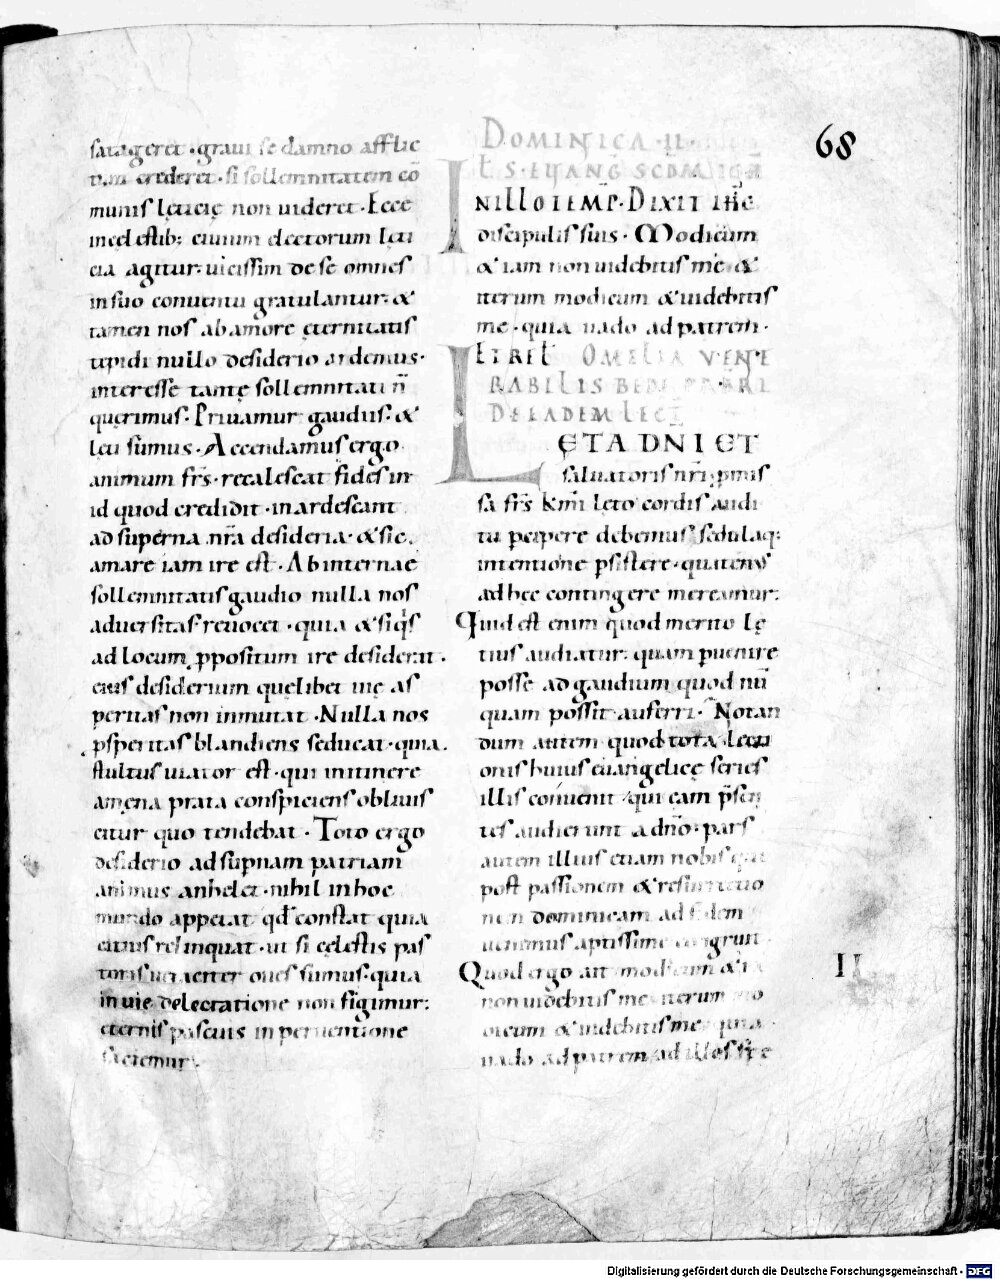 satageret · graui se damno afflic
tum crederet · si sollemnitatem cō
munis lęticię non uideret · Ecce
in cęlestib; ciuium electorum lęti
cia agitur · uicissim de se omnes
in suo conuentu gratulantur · &
tamen nos ab amore ęternitatis
tepidi nullo desiderio ardemus ·
interesse tantę sollemnitati n̄
querimus · Priuamur gaudiis · &
leti sumus · Accendamus ergo
animum fr̄s · recalescat fides in
id quod credidit · inardescant
ad superna nr̄a desideria · & sic
amare iam ire est · Ab internae
sollemnitatis gaudio nulla nos
aduersitas reuocet · quia & siq̍s
ad locum ꝓpositum ire desiderat ·
eius desiderium quęlibet uię as
peritas non inmutat · Nulla nos
ꝓsperitas blandiens seducat · quia
stultus uiator est · qui in itinere
amęna prata conspiciens obliuis
citur quo tendebat · Toto ergo
desiderio ad sup̄nam patriam
animus anhelet · nihil in hoc
mundo appetat qd̄ constat quia
citius relinquat · ut si cęlestis pas
toris ueraciter oues sumus · quia
in uię delectatione non figimur ·
ęternis pascuis in peruentione
saciemur ·
68
DOMINICA · II ·
SCDM
IN ILLO TEMP̄ · DIXIT IHC
discipulis suis · Modicum
& iam non uidebitis me &
iterum modicum & uidebitis
me · quia uado ad patrem ·
ET REL̄ OMELIA VENE
RABILIS BEDĘ PR̄BRI
DE EADEM LECT̄
LETA DNI ET
saluatoris nr̄i ꝓmis
sa fr̄s km̄i leto cordis audi
tu ꝑcipere debemus · sedulaq;
intentione ꝑsistere · quatenus
ad hęc contingere mereamur ·
Quid est enim quod merito lę
tius audiatur · quam ꝑuenire
posse ad gaudium quod nū
quam possit auferri · Notan
dum autem quod tota lecti
onis huius euangelicę series
illis conuenit · qui eam p̄sen
tes audierunt a dn̄o · pars
autem illius etiam nobis qui
post passionem & resurrectio
nem dominicam ad fidem
uenimus aptissime congruit ·
Quod ergo ait modicum & iā
non uidebitis me · iterum mo
dicum & uidebitis me · quia
uado ad patrem · ad illos sp̄
II
Digitalisierung gefördert durch die Deutsche Forschungsgemeinschaft - DFG